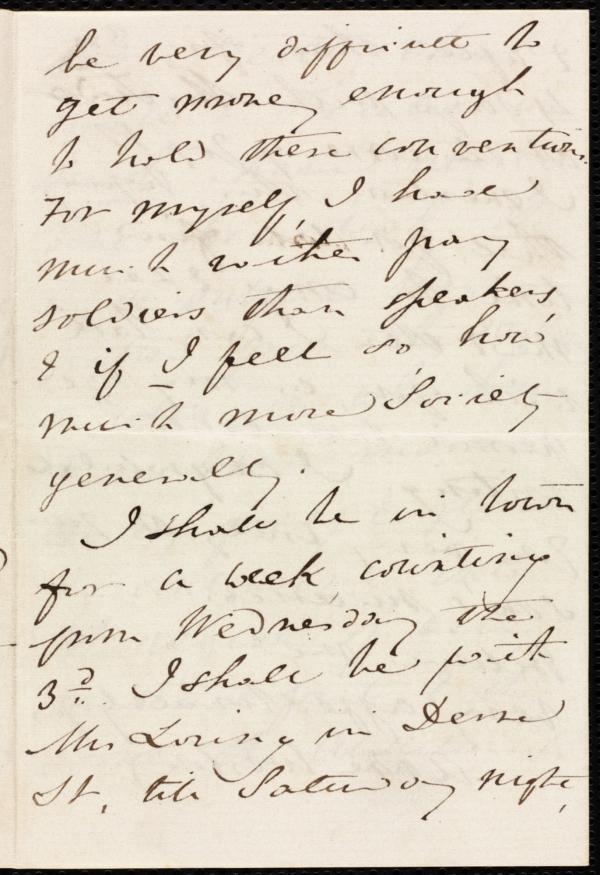 be very difficult to
get money enough
to hold these conventions.
For myself, I had
much rather pay
soldiers than speakers,
& if I feel so, how
much more Society
generally.
I shall be in town
for a week counting
from Wednesday the
3d. I shall be with
Mrs Loring in Derne
St, till Saturday night,